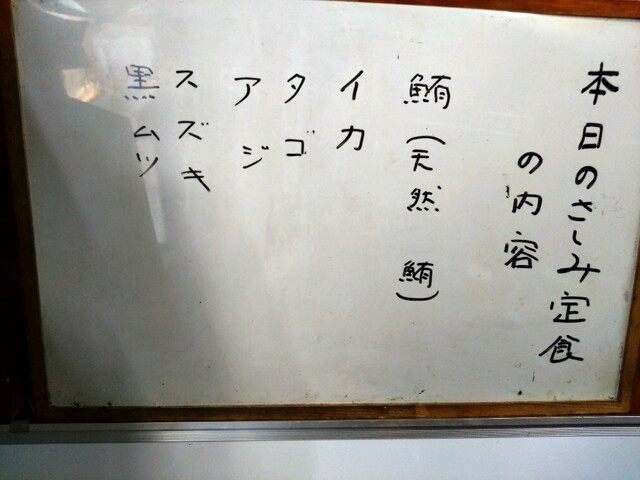 本日のさしみ定食
の内容
鮪(天然 鮪)
イカ
タゴ
アジ
スズキ
黒ムツ